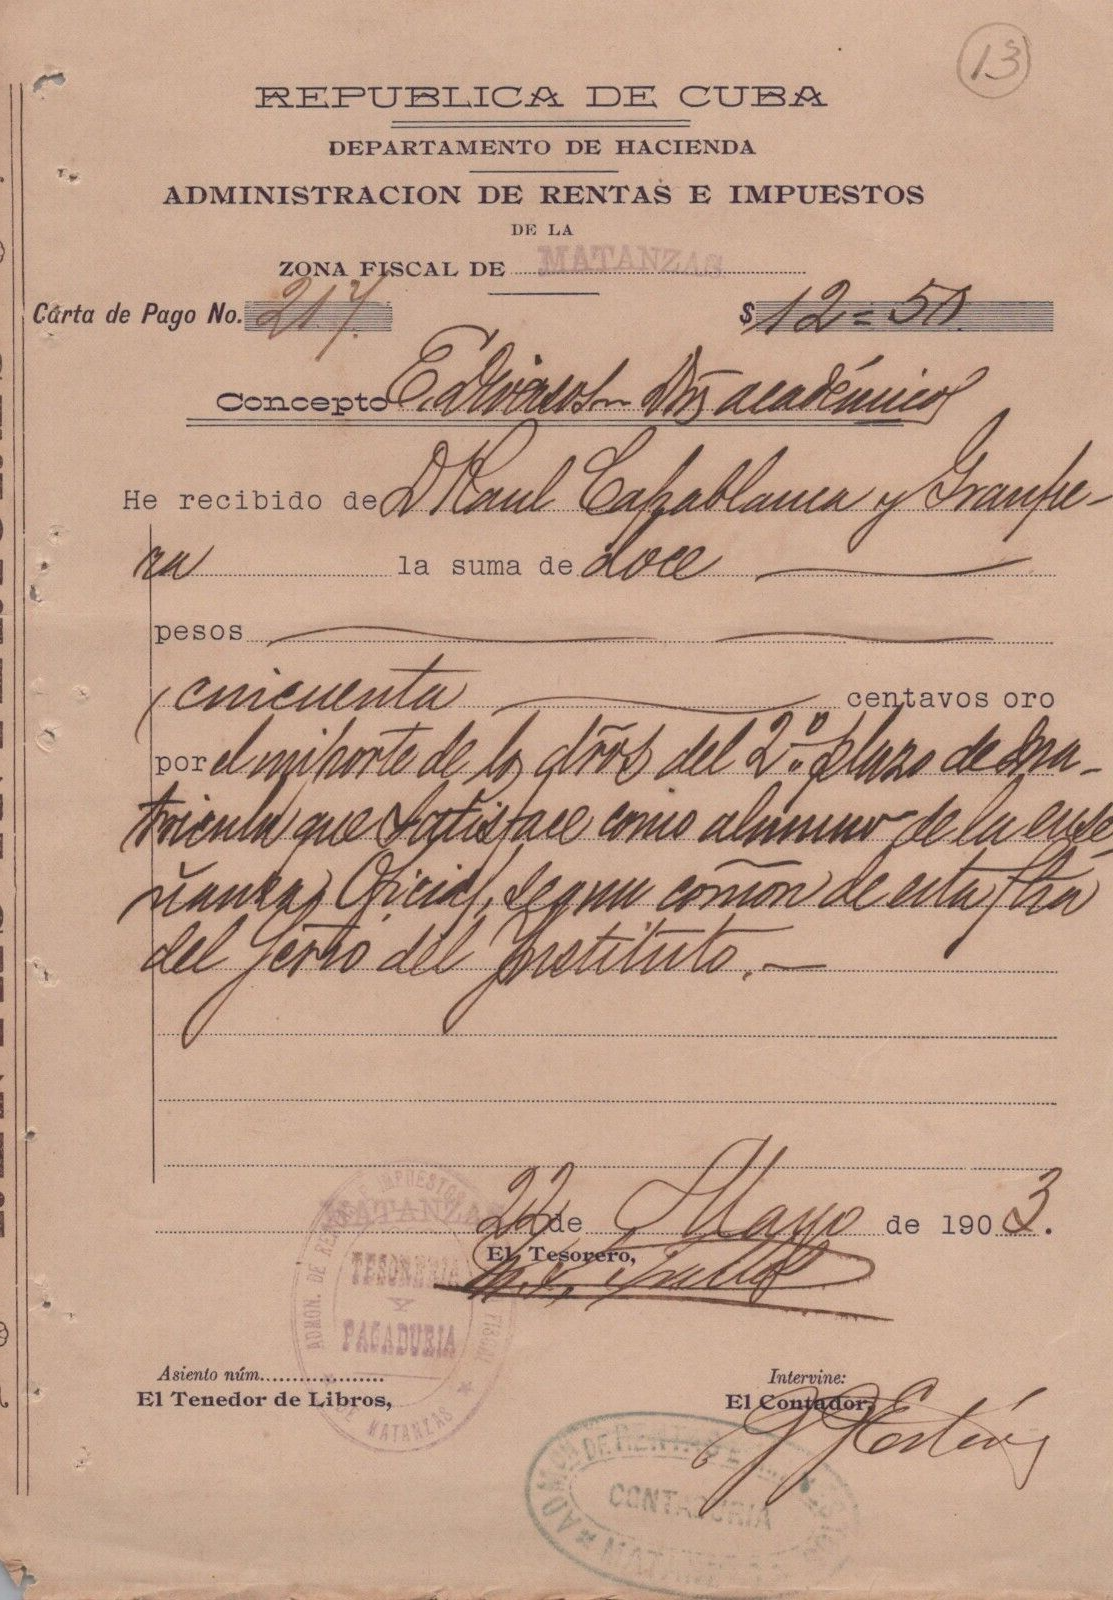 13
REPUBLICA DE CUBA
DEPARTAMENTO DE HACIENDA
ADMINISTRACION DE RENTAS E IMPUESTOS
DE LA
ZONA FISCAL DE MATANZAS
Carta de Pago No. 217. $ 12=50.
Concepto E. Diversos Dros académicos
He recibido de D Raul Capablanca y Graupe-
ra la suma de doce
pesos
cincuenta centavos oro
por el importe de los dros del 2º plazo de Ma-
tricula que satisface como alumno de la ense-
ñanza Oficial, segun comon de esta fha
del Serio del Instituto.
22 de Mayo de 1903.
El Tesorero,
MATANZAS
ADMON. DE RENTAS E IMPUESTOS
FISCAL DE MATANZAS
TESORERIA
Y
PAGADURIA
Asiento núm.
El Tenedor de Libros,
Intervine:
El Contador,
ADMON DE RENTAS E IMPUESTOS
CONTADURIA
MATANZAS